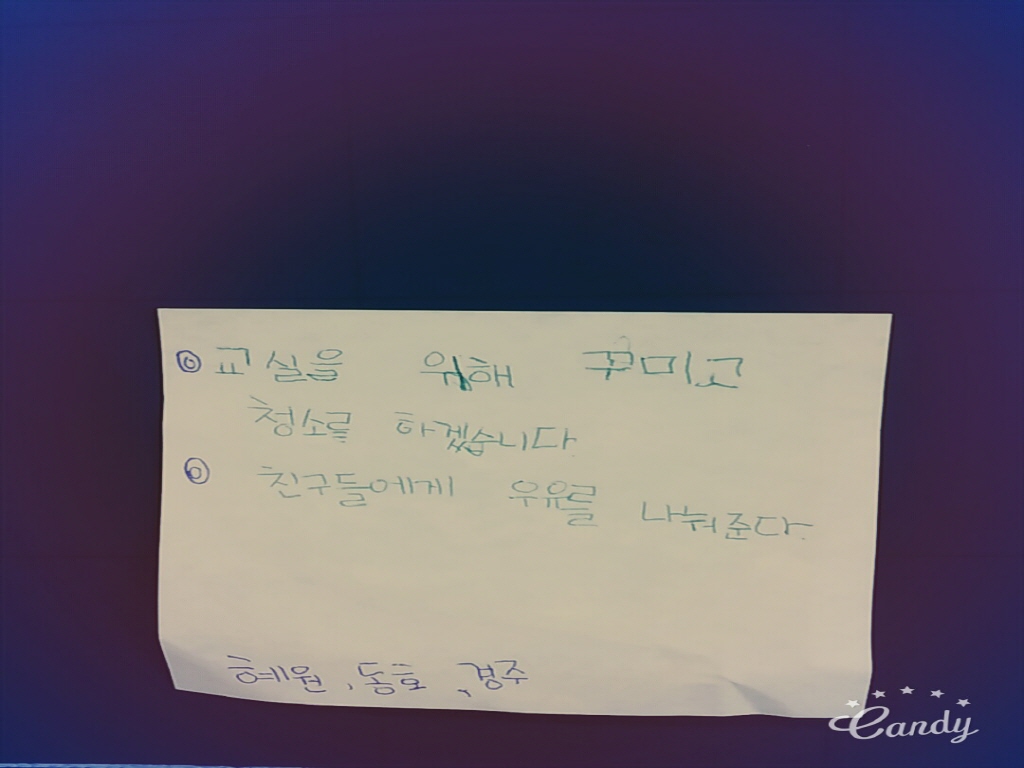 ◎ 교실을 위해 꾸미고
청소를 하겠습니다.
◎ 친구들에게 우유를 나눠준다.
혜원, 동호, 경주
Candy